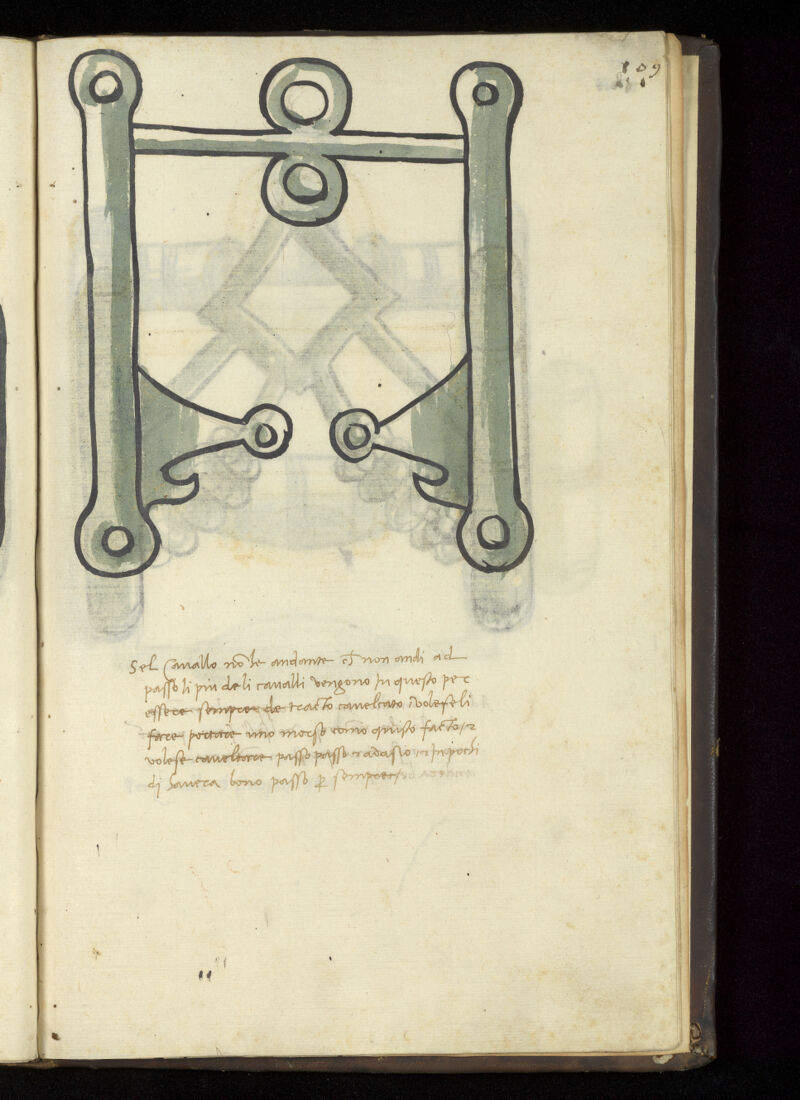 109
Sel Cavallo nō le andante et non andi ad
passo li piu de li cavalli vengono In questo per
essere sempre de tracto cavalcato volese li
fare portare uno morso como quisto facto et
volese cavalcare passo passo adasio et In pochi
di havera bono passo p sempre